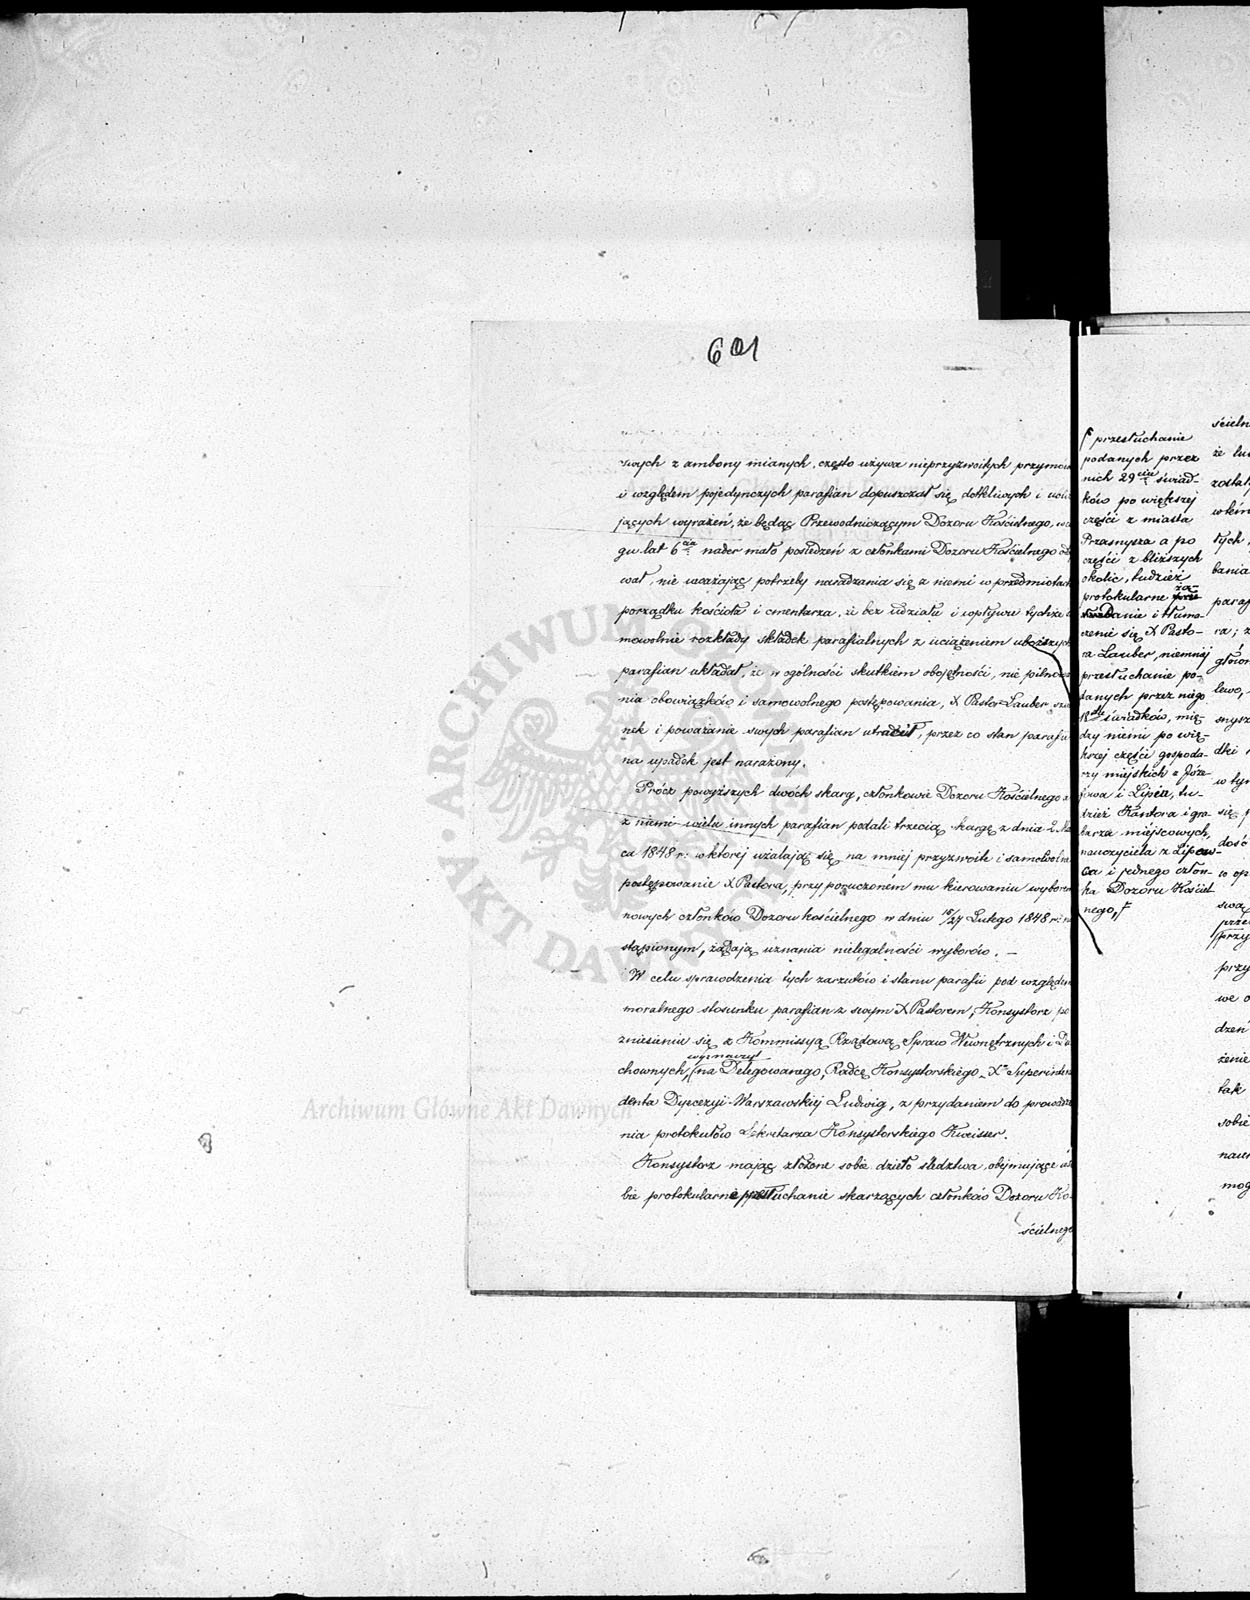 601
swych z ambony mianych, często używa nieprzyzwoitych przymów
i względem pojedynczych parafian dopuszczał się dotkliwych i
jących wyrażeń, że będąc Przewodniczącym Dozoru Kościelnego, w
gu lat 6ciu nader mało posiedzeń z członkami Dozoru Kościelnego
wał, nie uważając potrzeby naradzania się z niemi w przedmiotach
porządku kościoła i cmentarza, że bez udziału i wpływu tychże
mowolnie rozkłady składek parafialnych z uciążeniem uboższych
parafian układał, że w ogólności skutkiem obojętności, nie pilnowa
nia obowiązków i samowolnego postępowania, X Pastor Lauber sza
nek i poważanie swych parafian utracił, przez co stan parafii
na upadek jest narażony.
Prócz powyższych dwóch skarg, członkowie Dozoru Kościelnego
z niemi wielu innych parafian podali trzecią skargę z dnia 2 Ma
ca 1848 r: w której użalają się na mniej przyzwoite i samowolne
postępowanie X Pastora, przy poruczoném mu kierowaniu wyborem
nowych członków Dozoru kościelnego w dniu 15/27 Lutego 1848 r: na
stąpionym, żądają uznania nielegalności wyborów. —
W celu sprawdzenia tych zarzutów i stanu parafii pod względem
moralnego stosunku parafian z swym X Pastorem, Konsystorz po
zniesieniu się z Kommissyą Rządową Spraw Wewnętrznych i Du
wyznaczył
chownych, na Delegowanego, Radcę Konsystorskiego Xa Superinten
denta Dyecezyi Warszawskiej Ludwig, z przydaniem do prowadze
nia protokułów Sekretarza Konsystorskiego Kweisser.
Konsystorz mając złożone sobie dzieło śledztwa, obejmujące w so
bie protokularne przesłuchanie skarzących członków Dozoru Ko-
ścielnego
przesłuchanie
podanych przez
nich 29ciu świad-
ków po większej
części z miasta
Przasnysza a po
części z bliższych
okolic, tudzież
protokularne
za-
danie i tłuma-
czenie się X Pasto-
ra Lauber, niemniej
przesłuchanie po-
danych przez niego
18stu świadków, mię-
dzy niemi po wię-
kszej części gospoda-
rzy miejskich z Józe
fowa i Lipin, tu-
dzież Kantora i gra-
barza miejscowych,
nauczyciela z Lipow-
ca i jednego człon-
ka Dozoru Kościel
nego,
ścieln
że lu
został
tych,
bania
paraf
ra; z
główn
lewo,
snysz
dki
w tym
się p
dość
w op
swą
przy
przy
we o
dzeń
żenie
tak
sobie
nau
mog